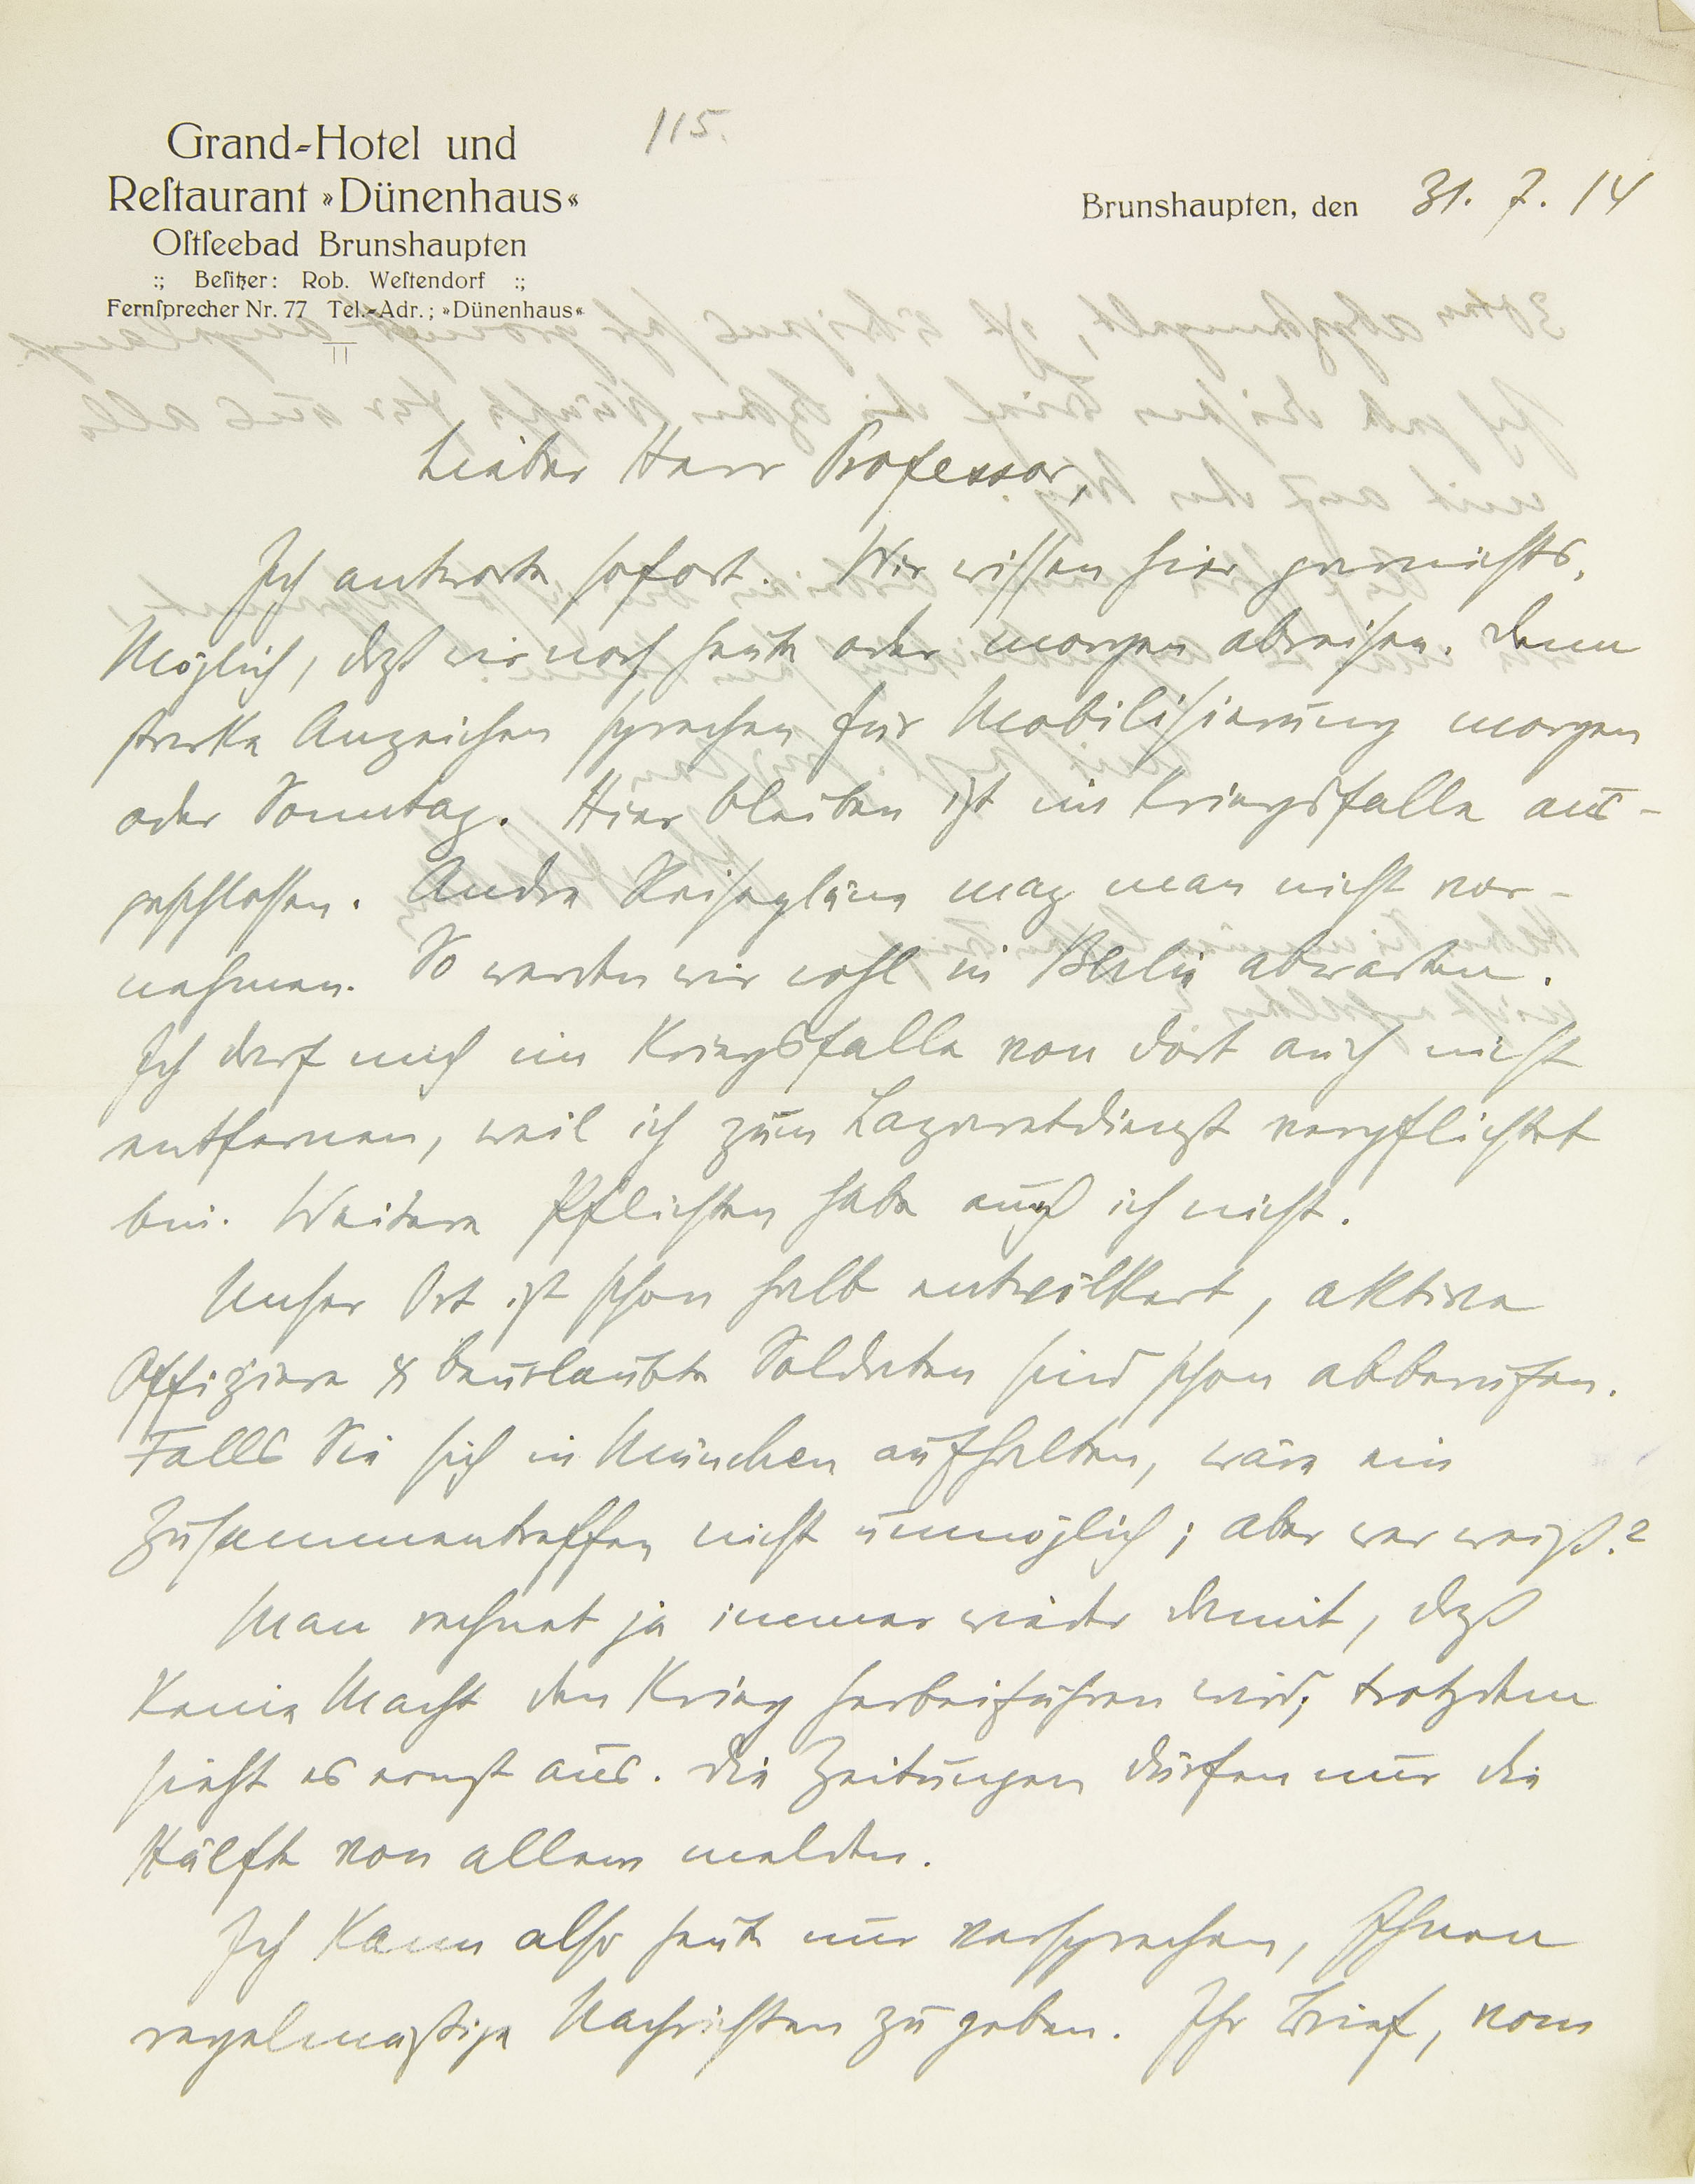 115.
Grand-Hotel und
Reſtaurant »Dünenhaus«
Oſtſeebad Brunshaupten
:; Beſitzer: Rob. Weſtendorf :;
Fernſprecher Nr. 77 Tel.-Adr.; »Dünenhaus«
Brunshaupten, den 31. 7. 14
Lieber Herr Professor,
Ich antworte sofort. Wir wissen hier garnichts.
Möglich, daß wir noch heute oder morgen abreisen. Denn
starke Anzeichen sprechen für Mobilisierung morgen
oder Sonntag. Hier bleiben ist im Kriegsfalle aus-
geschlossen. Andre Reisepläne mag man nicht vor-
nehmen. So werden wir wohl in Berlin abwarten.
Ich darf mich im Kriegsfalle von dort auch nicht
entfernen, weil ich zum Lazaretdienst verpflichtet
bin. Weitere Pflichten habe auch ich nicht.
Unser Ort ist schon halb entvölkert, aktive
Offiziere & beurlaubte Soldaten sind schon abberufen.
Falls Sie sich in München aufhalten, wäre ein
Zusammentreffen nicht unmöglich; aber wer weiß?
Man rechnet ja immer wieder damit, daß
keine Macht den Krieg herbeiführen wird; trotzdem
sieht es ernst aus. Die Zeitungen dürfen nur die
Hälfte von allem melden.
Ich kann also heute nur versprechen, Ihnen
regelmäßige Nachrichten zu geben. Ihr Brief, vom